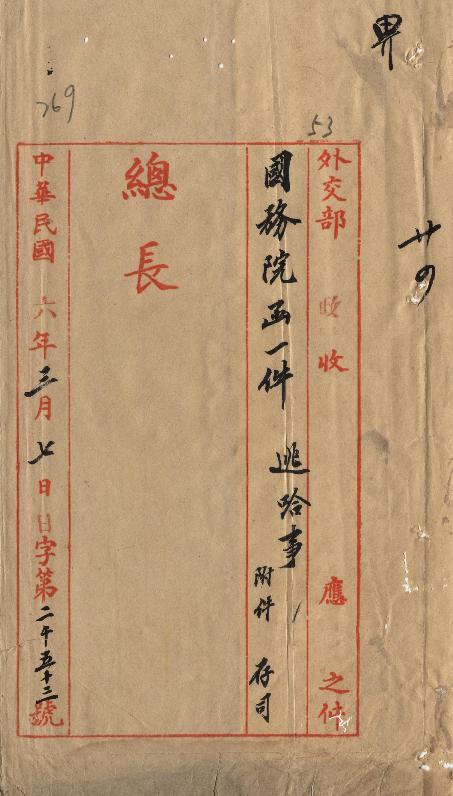 界
廿四
53
外交部 收收 應 之件
國務院函一件 逃哈事
附件 存司
總長
269
中華民國六年三月七日日字第二千五十三號